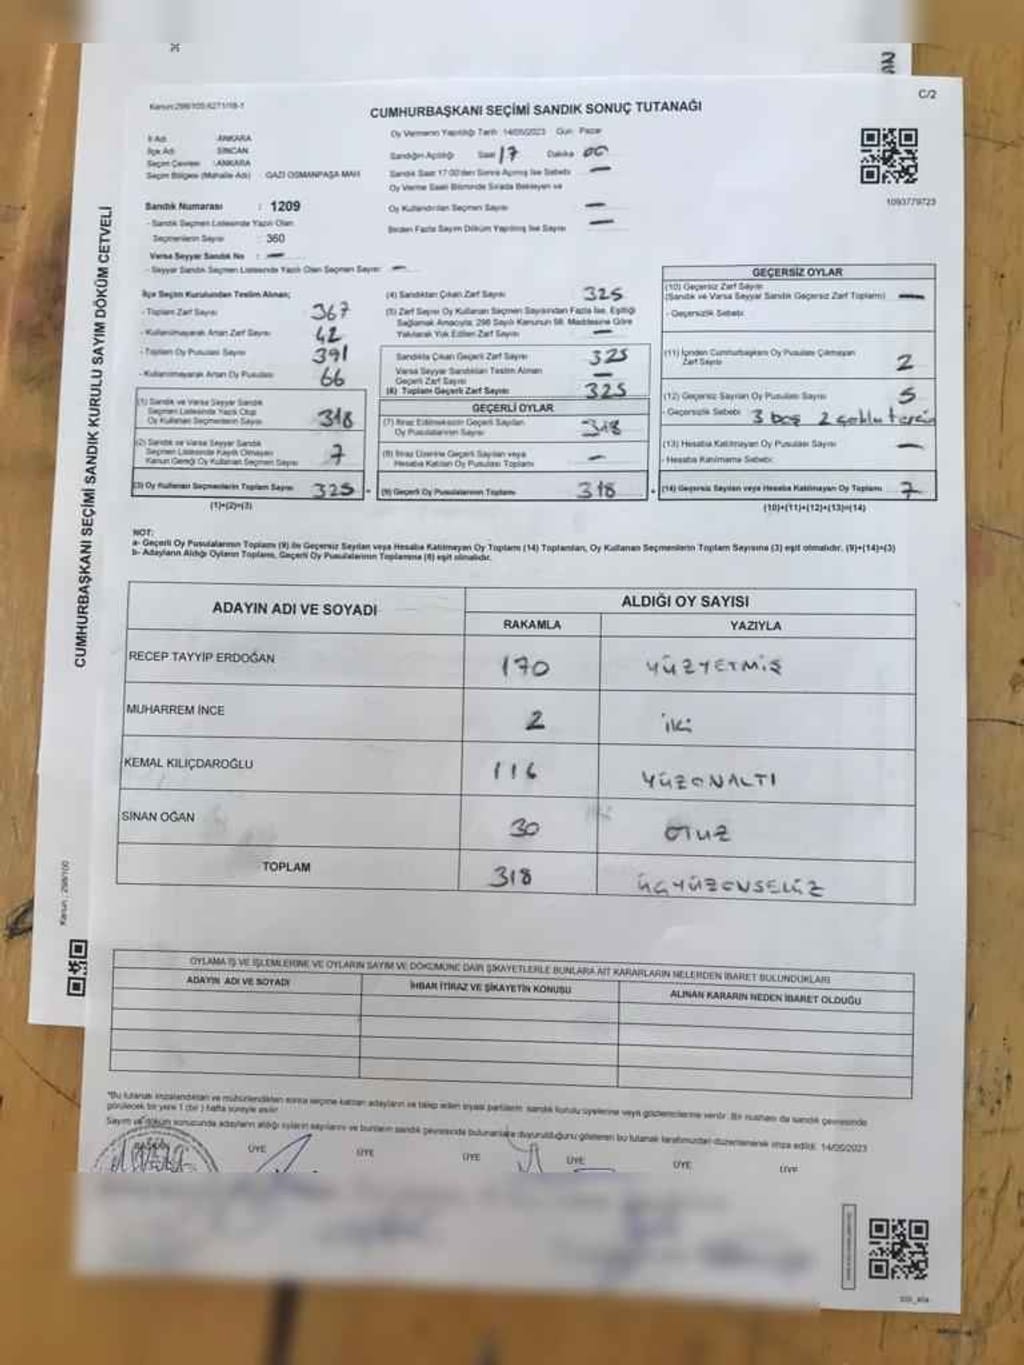 Kanun:298/105;6271/18-1
C/2
CUMHURBAŞKANI SEÇİMİ SANDIK SONUÇ TUTANAĞI
CUMHURBAŞKANI SEÇİMİ SANDIK KURULU SAYIM DÖKÜM CETVELİ
İl Adı : ANKARA
İlçe Adı : SİNCAN
Seçim Çevresi : ANKARA
Seçim Bölgesi (Mahalle Adı) : GAZİ OSMANPAŞA MAH.
Sandık Numarası : 1209
- Sandık Seçmen Listesinde Yazılı Olan
Seçmenlerin Sayısı : 360
Varsa Seyyar Sandık No : —
- Seyyar Sandık Seçmen Listesinde Yazılı Olan Seçmen Sayısı : —
Oy Vermenin Yapıldığı Tarih : 14/05/2023 Gün : Pazar
Sandığın Açıldığı Saat 17 Dakika 00
Sandık Saat 17:00'den Sonra Açılmış İse Sebebi —
Oy Verme Saati Bitiminde Sırada Bekleyen ve
Oy Kullandırılan Seçmen Sayısı —
Birden Fazla Sayım Döküm Yapılmış İse Sayısı —
1093779723
İlçe Seçim Kurulundan Teslim Alınan;
- Toplam Zarf Sayısı 367
- Kullanılmayarak Artan Zarf Sayısı 42
- Toplam Oy Pusulası Sayısı 391
- Kullanılmayarak Artan Oy Pusulası 66
(1) Sandık ve Varsa Seyyar Sandık
Seçmen Listesinde Yazılı Olup
Oy Kullanan Seçmenlerin Sayısı 318
(2) Sandık ve Varsa Seyyar Sandık
Seçmen Listesinde Kayıtlı Olmayan
Kanun Gereği Oy Kullanan Seçmen Sayısı 7
(3) Oy Kullanan Seçmenlerin Toplam Sayısı 325
(1)+(2)=(3)
(4) Sandıktan Çıkan Zarf Sayısı 325
(5) Zarf Sayısı Oy Kullanan Seçmen Sayısından Fazla İse, Eşitliği
Sağlamak Amacıyla, 298 Sayılı Kanunun 98. Maddesine Göre
Yakılarak Yok Edilen Zarf Sayısı —
Sandıkta Çıkan Geçerli Zarf Sayısı 325
Varsa Seyyar Sandıktan Teslim Alınan
Geçerli Zarf Sayısı —
(6) Toplam Geçerli Zarf Sayısı 325
GEÇERLİ OYLAR
(7) İtiraz Edilmeksizin Geçerli Sayılan
Oy Pusulalarının Sayısı 318
(8) İtiraz Üzerine Geçerli Sayılan veya
Hesaba Katılan Oy Pusulası Toplamı —
(9) Geçerli Oy Pusulalarının Toplamı 318
GEÇERSİZ OYLAR
(10) Geçersiz Zarf Sayısı
(Sandık ve Varsa Seyyar Sandık Geçersiz Zarf Toplamı) —
- Geçersizlik Sebebi:
(11) İçinden Cumhurbaşkanı Oy Pusulası Çıkmayan
Zarf Sayısı 2
(12) Geçersiz Sayılan Oy Pusulası Sayısı 5
- Geçersizlik Sebebi 3 boş 2 çoklu tercih
(13) Hesaba Katılmayan Oy Pusulası Sayısı —
- Hesaba Katılmama Sebebi:
(14) Geçersiz Sayılan veya Hesaba Katılmayan Oy Toplamı 7
(10)+(11)+(12)+(13)=(14)
NOT:
a- Geçerli Oy Pusulalarının Toplamı (9) ile Geçersiz Sayılan veya Hesaba Katılmayan Oy Toplamı (14) Toplamları, Oy Kullanan Seçmenlerin Toplam Sayısına (3) eşit olmalıdır. (9)+(14)=(3)
b- Adayların Aldığı Oyların Toplamı, Geçerli Oy Pusulalarının Toplamına (9) eşit olmalıdır.
ADAYIN ADI VE SOYADI
ALDIĞI OY SAYISI
RAKAMLA YAZIYLA
RECEP TAYYİP ERDOĞAN 170 YÜZYETMİŞ
MUHARREM İNCE 2 İKİ
KEMAL KILIÇDAROĞLU 116 YÜZONALTI
SİNAN OĞAN 30 OTUZ
TOPLAM 318 ÜÇYÜZONSEKİZ
Kanun : 298/100
OYLAMA İŞ VE İŞLEMLERİNE VE OYLARIN SAYIM VE DÖKÜMÜNE DAİR ŞİKAYETLERLE BUNLARA AİT KARARLARIN NELERDEN İBARET BULUNDUKLARI
ADAYIN ADI VE SOYADI İHBAR İTİRAZ VE ŞİKAYETİN KONUSU ALINAN KARARIN NEDEN İBARET OLDUĞU
*Bu tutanak imzalandıktan ve mühürlendikten sonra seçime katılan adayların ve talep eden siyasi partilerin sandık kurulu üyelerine veya gözlemcilerine verilir. Bir nüshası da sandık çevresinde
görülecek bir yere 1 (bir) hafta süreyle asılır.
Sayım ve döküm sonucunda adayların aldığı oyların sayılarını ve bunların sandık çevresinde bulunanlara duyurulduğunu gösteren bu tutanak tarafımızdan düzenlenerek imza edildi. 14/05/2023
ÜYE ÜYE ÜYE ÜYE ÜYE ÜYE